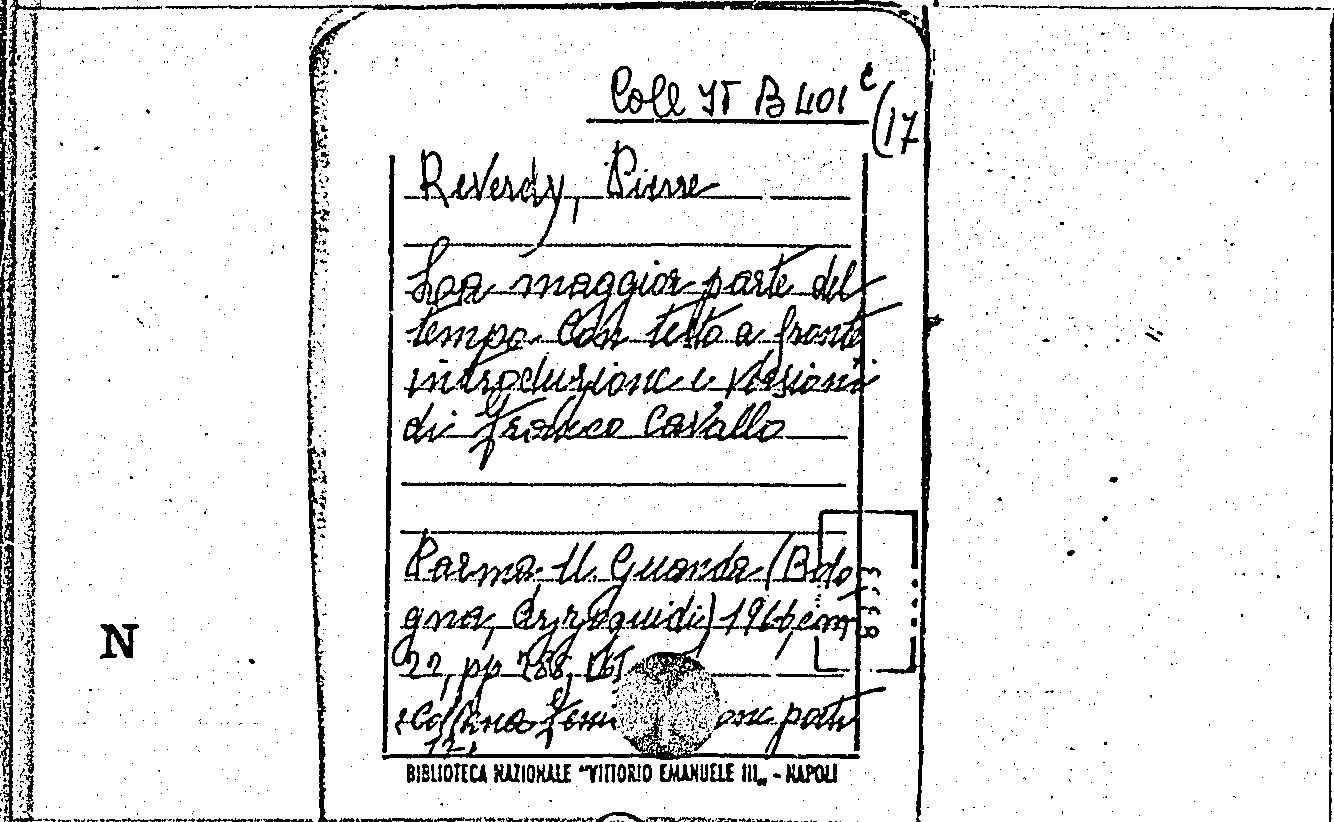 Coll IT B 401 c
(17
Reverdy, Pierre
La maggior parte del
tempo. Con testo a fronte
introduzione e versioni
di Franco Cavallo
Parma U. Guanda (Bolo
gna, Azzoguidi) 1966, cm
22, pp
N
BIBLIOTECA NAZIONALE "VITTORIO EMANUELE III„ - NAPOLI